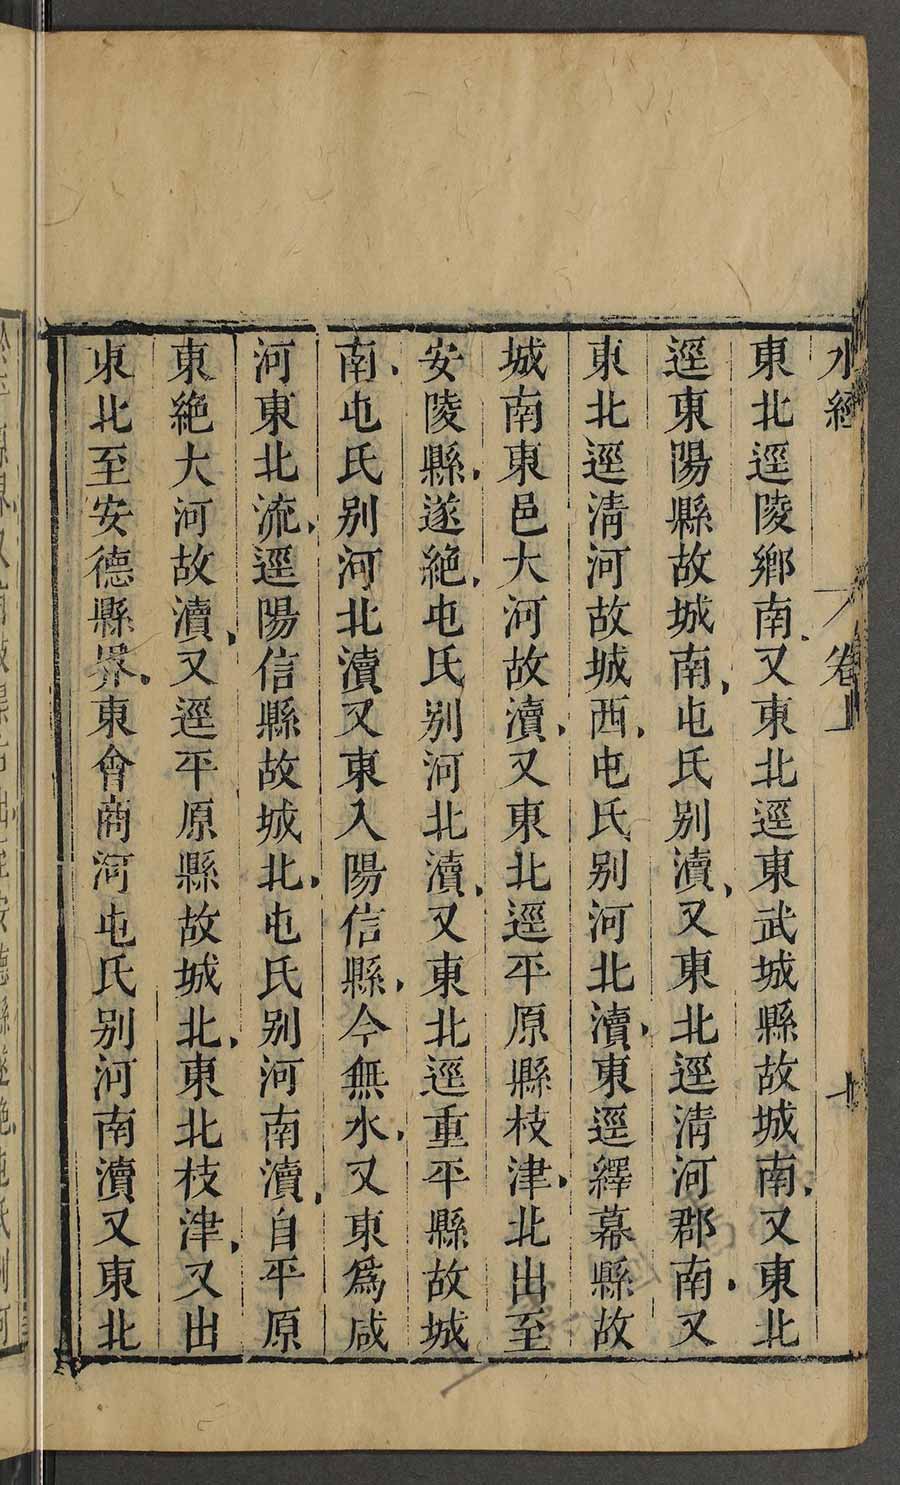 水經 卷上 七
東北逕陵鄉南又東北逕東武城縣故城南又東北
逕東陽縣故城南屯氏别瀆又東北逕清河郡南又
東北逕清河故城西屯氏别河北瀆東逕繹幕縣故
城南東邑大河故瀆又東北逕平原縣枝津北出至
安陵縣遂絶屯氏别河北瀆又東北逕重平縣故城
南屯氏别河北瀆又東入陽信縣今無水又東爲咸
河東北流逕陽信縣故城北屯氏别河南瀆自平原
東絶大河故瀆又逕平原縣故城北東北枝津又出
東北至安德縣界東會商河屯氏别河南瀆又東北